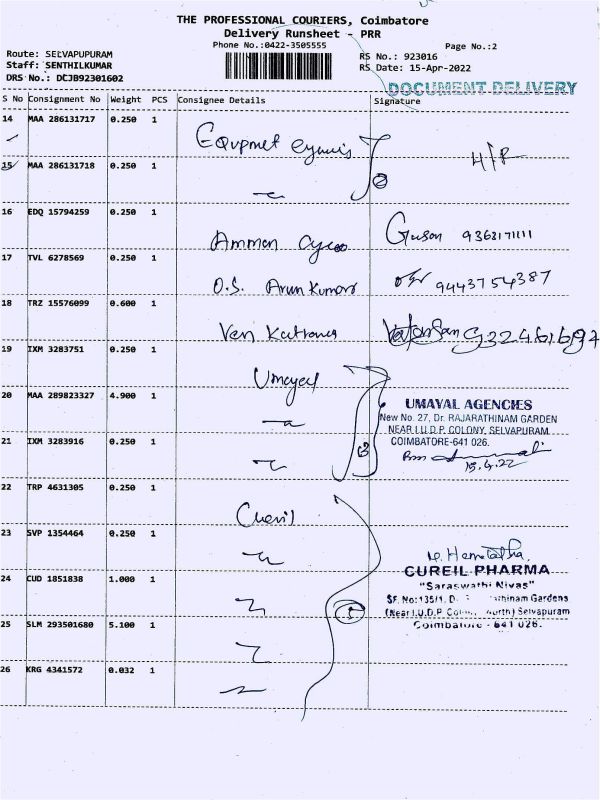 THE PROFESSIONAL COURIERS, Coimbatore
Delivery Runsheet - PRR
Phone No.:0422-3505555
Page No.:2
Route: SELVAPUPURAM
RS No.: 923016
Staff: SENTHILKUMAR
RS Date: 15-Apr-2022
DRS No.: DCJB92301602
DOCUMENT DELIVERY
S No Consignment No Weight PCS Consignee Details Signature
14 MAA 286131717 0.250 1
15 MAA 286131718 0.250 1
H/R
16 EDQ 15794259 0.250 1
Ammen 9363171111
17 TVL 6278569 0.250 1
O.S. Arun Kumar 9443754387
18 TRZ 15576099 0.600 1
19 IXM 3283751 0.250 1
Umayal
20 MAA 289823327 4.900 1
UMAYAL AGENCIES
New No. 27, Dr. RAJARATHINAM GARDEN
NEAR I.U.D.P. COLONY, SELVAPURAM
COIMBATORE-641 026.
15.4.22
21 IXM 3283916 0.250 1
22 TRP 4631305 0.250 1
23 SVP 1354464 0.250 1
CUREIL PHARMA
"Saraswathi Nivas"
24 CUD 1851838 1.000 1
SF. No:135/1, D. thinam Gardens
(Near I.U.D.P. North) Selvapuram
Coimbatore - 641 026.
25 SLM 293501680 5.100 1
26 KRG 4341572 0.032 1